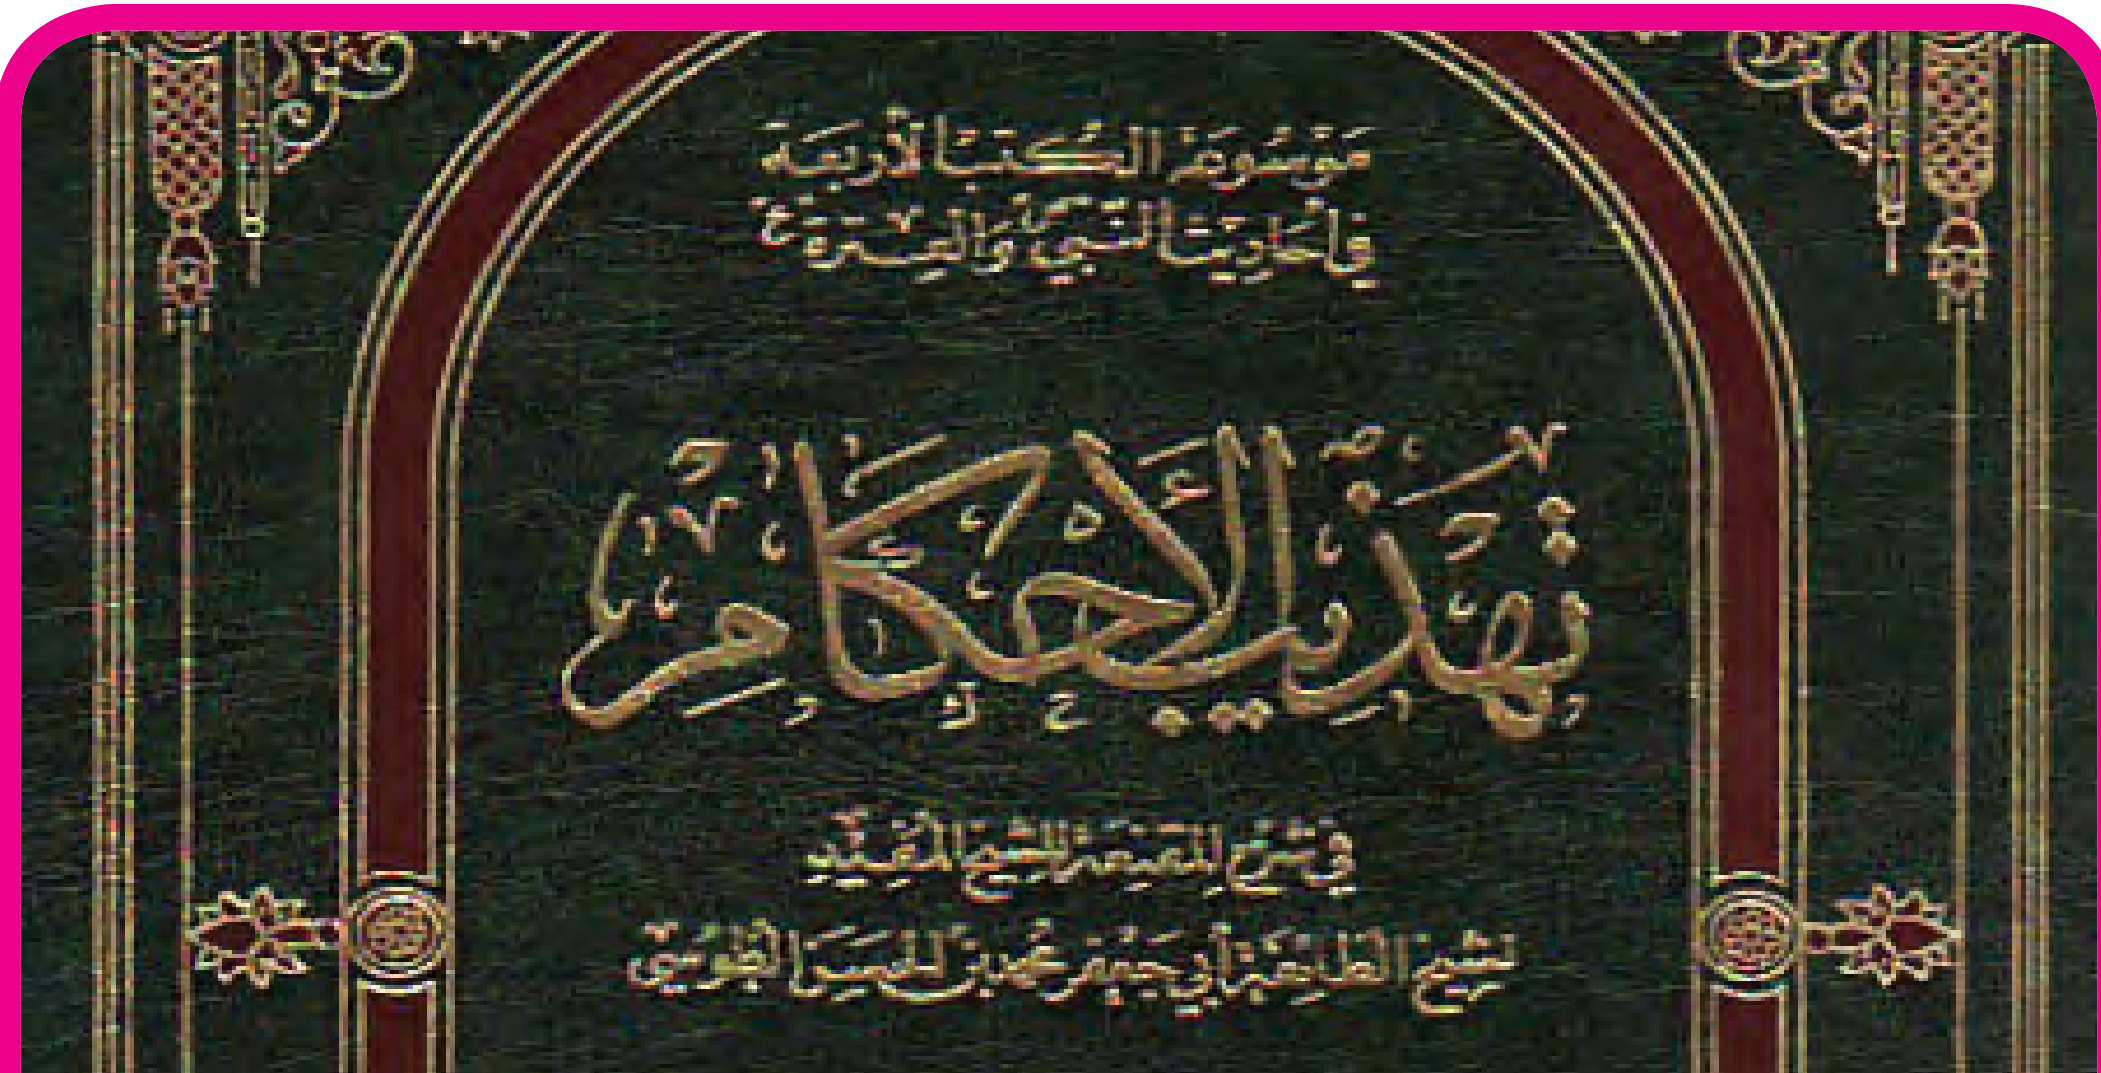 موسوعة الكتب الأربعة
في أحاديث النبي والعترة
تهذيب الأحكام
في شرح المقنعة للشيخ المفيد
لشيخ الطائفة أبي جعفر محمد بن الحسن الطوسي